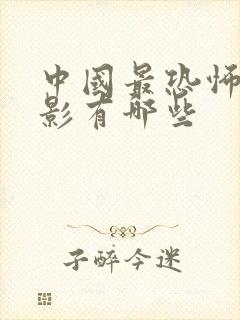 中國最恐怖
影有哪些
子醉今迷